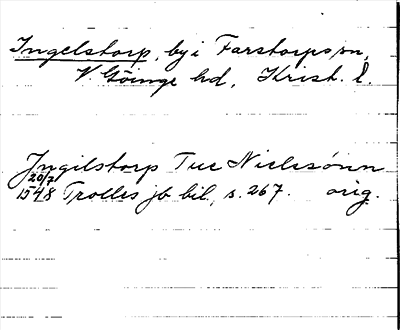 Ingelstorp, by i Farstorps sn,
V. Göinge hd, Krist. l.
Jngilstorp Tue Nielssönn
20/7 1548 Trolles jb bil., s. 267. orig.